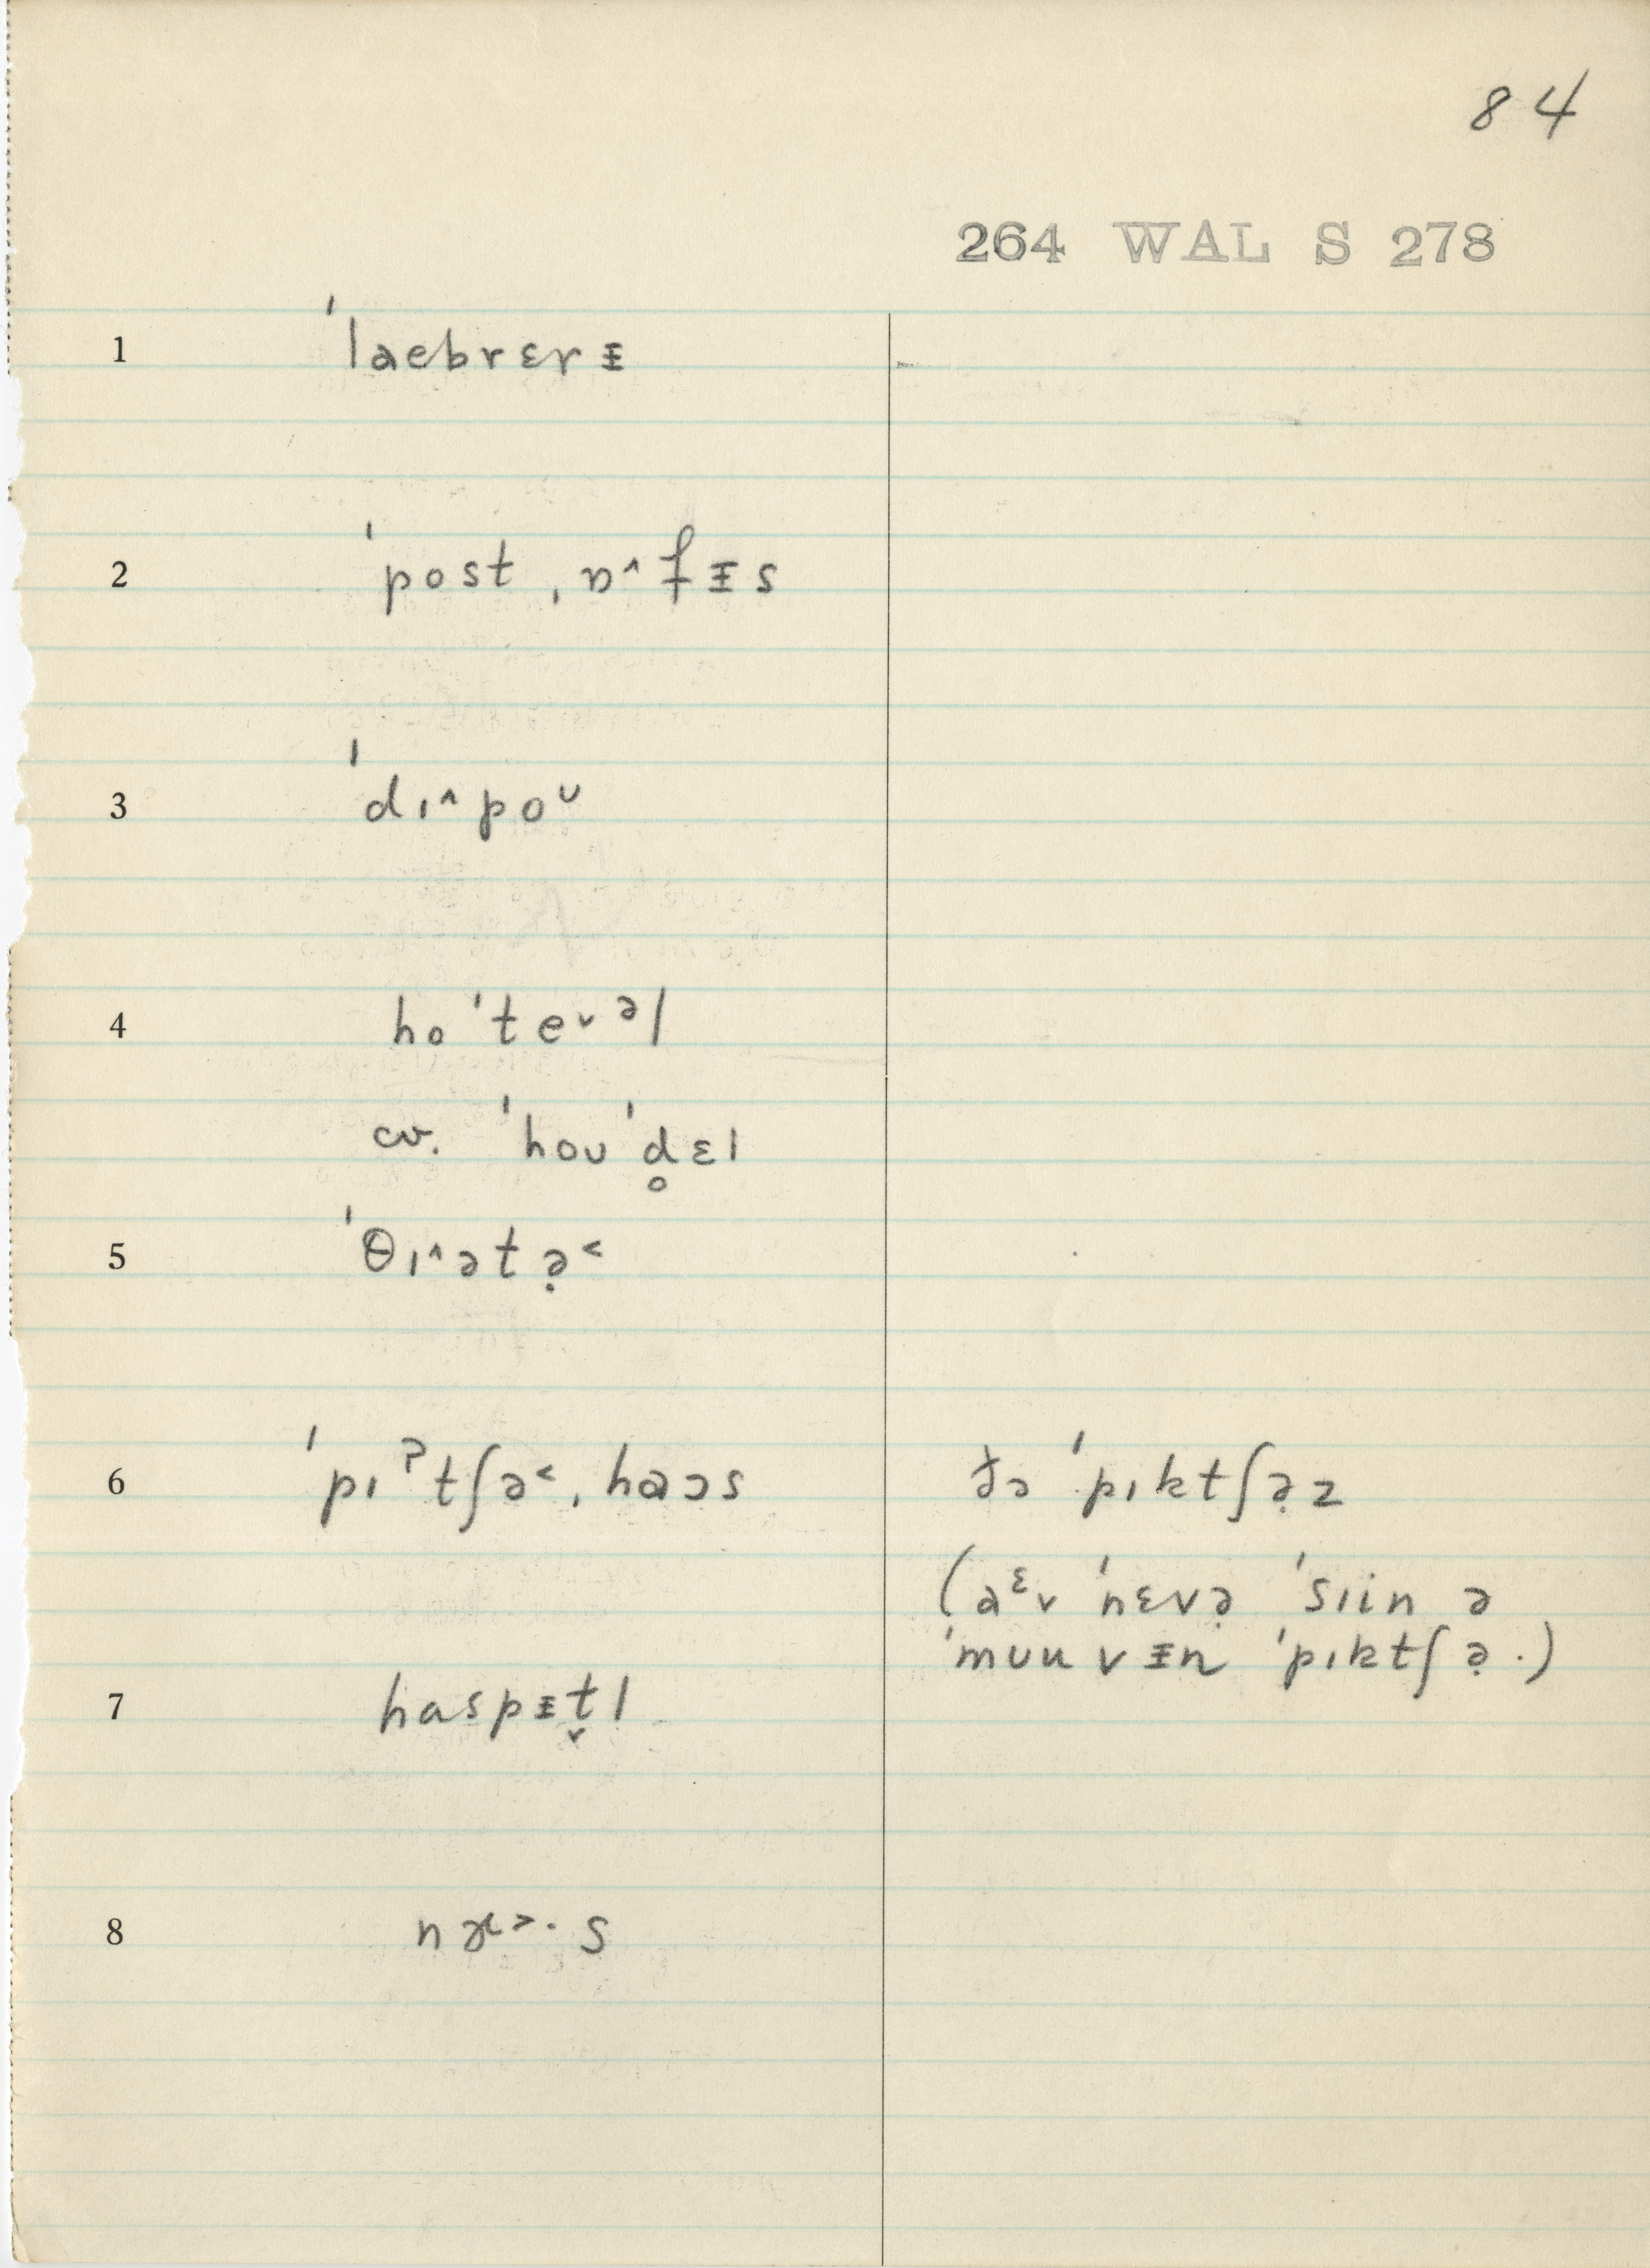 84
264 WAL S 278
1 ˈlaebrɛrᵻ
2 ˈpost ˌɒ˄fᵻs
3 ˈdɪ˄poᶷ
4 hoˈte˅ᵊl
cv. ˈhoʊˈd̥ɛl
5 ˈθɪ˄ətə̣˂
6 ˈpɪˀtʃə˂ˌhaɔs ðə ˈpɪktʃə̣z
(aᵋv ˈnɛvə̣ ˈsɪin ə
ˈmʊuvᵻn ˈpɪktʃə̣.)
7 haspᵻt̬l
8 nɜ˃·s